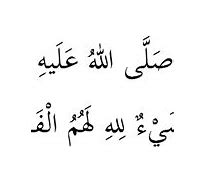 صَلَّى اللهُ عَلَيهِ
شَيْءٌ لِلهِ لَهُمُ الْفَ